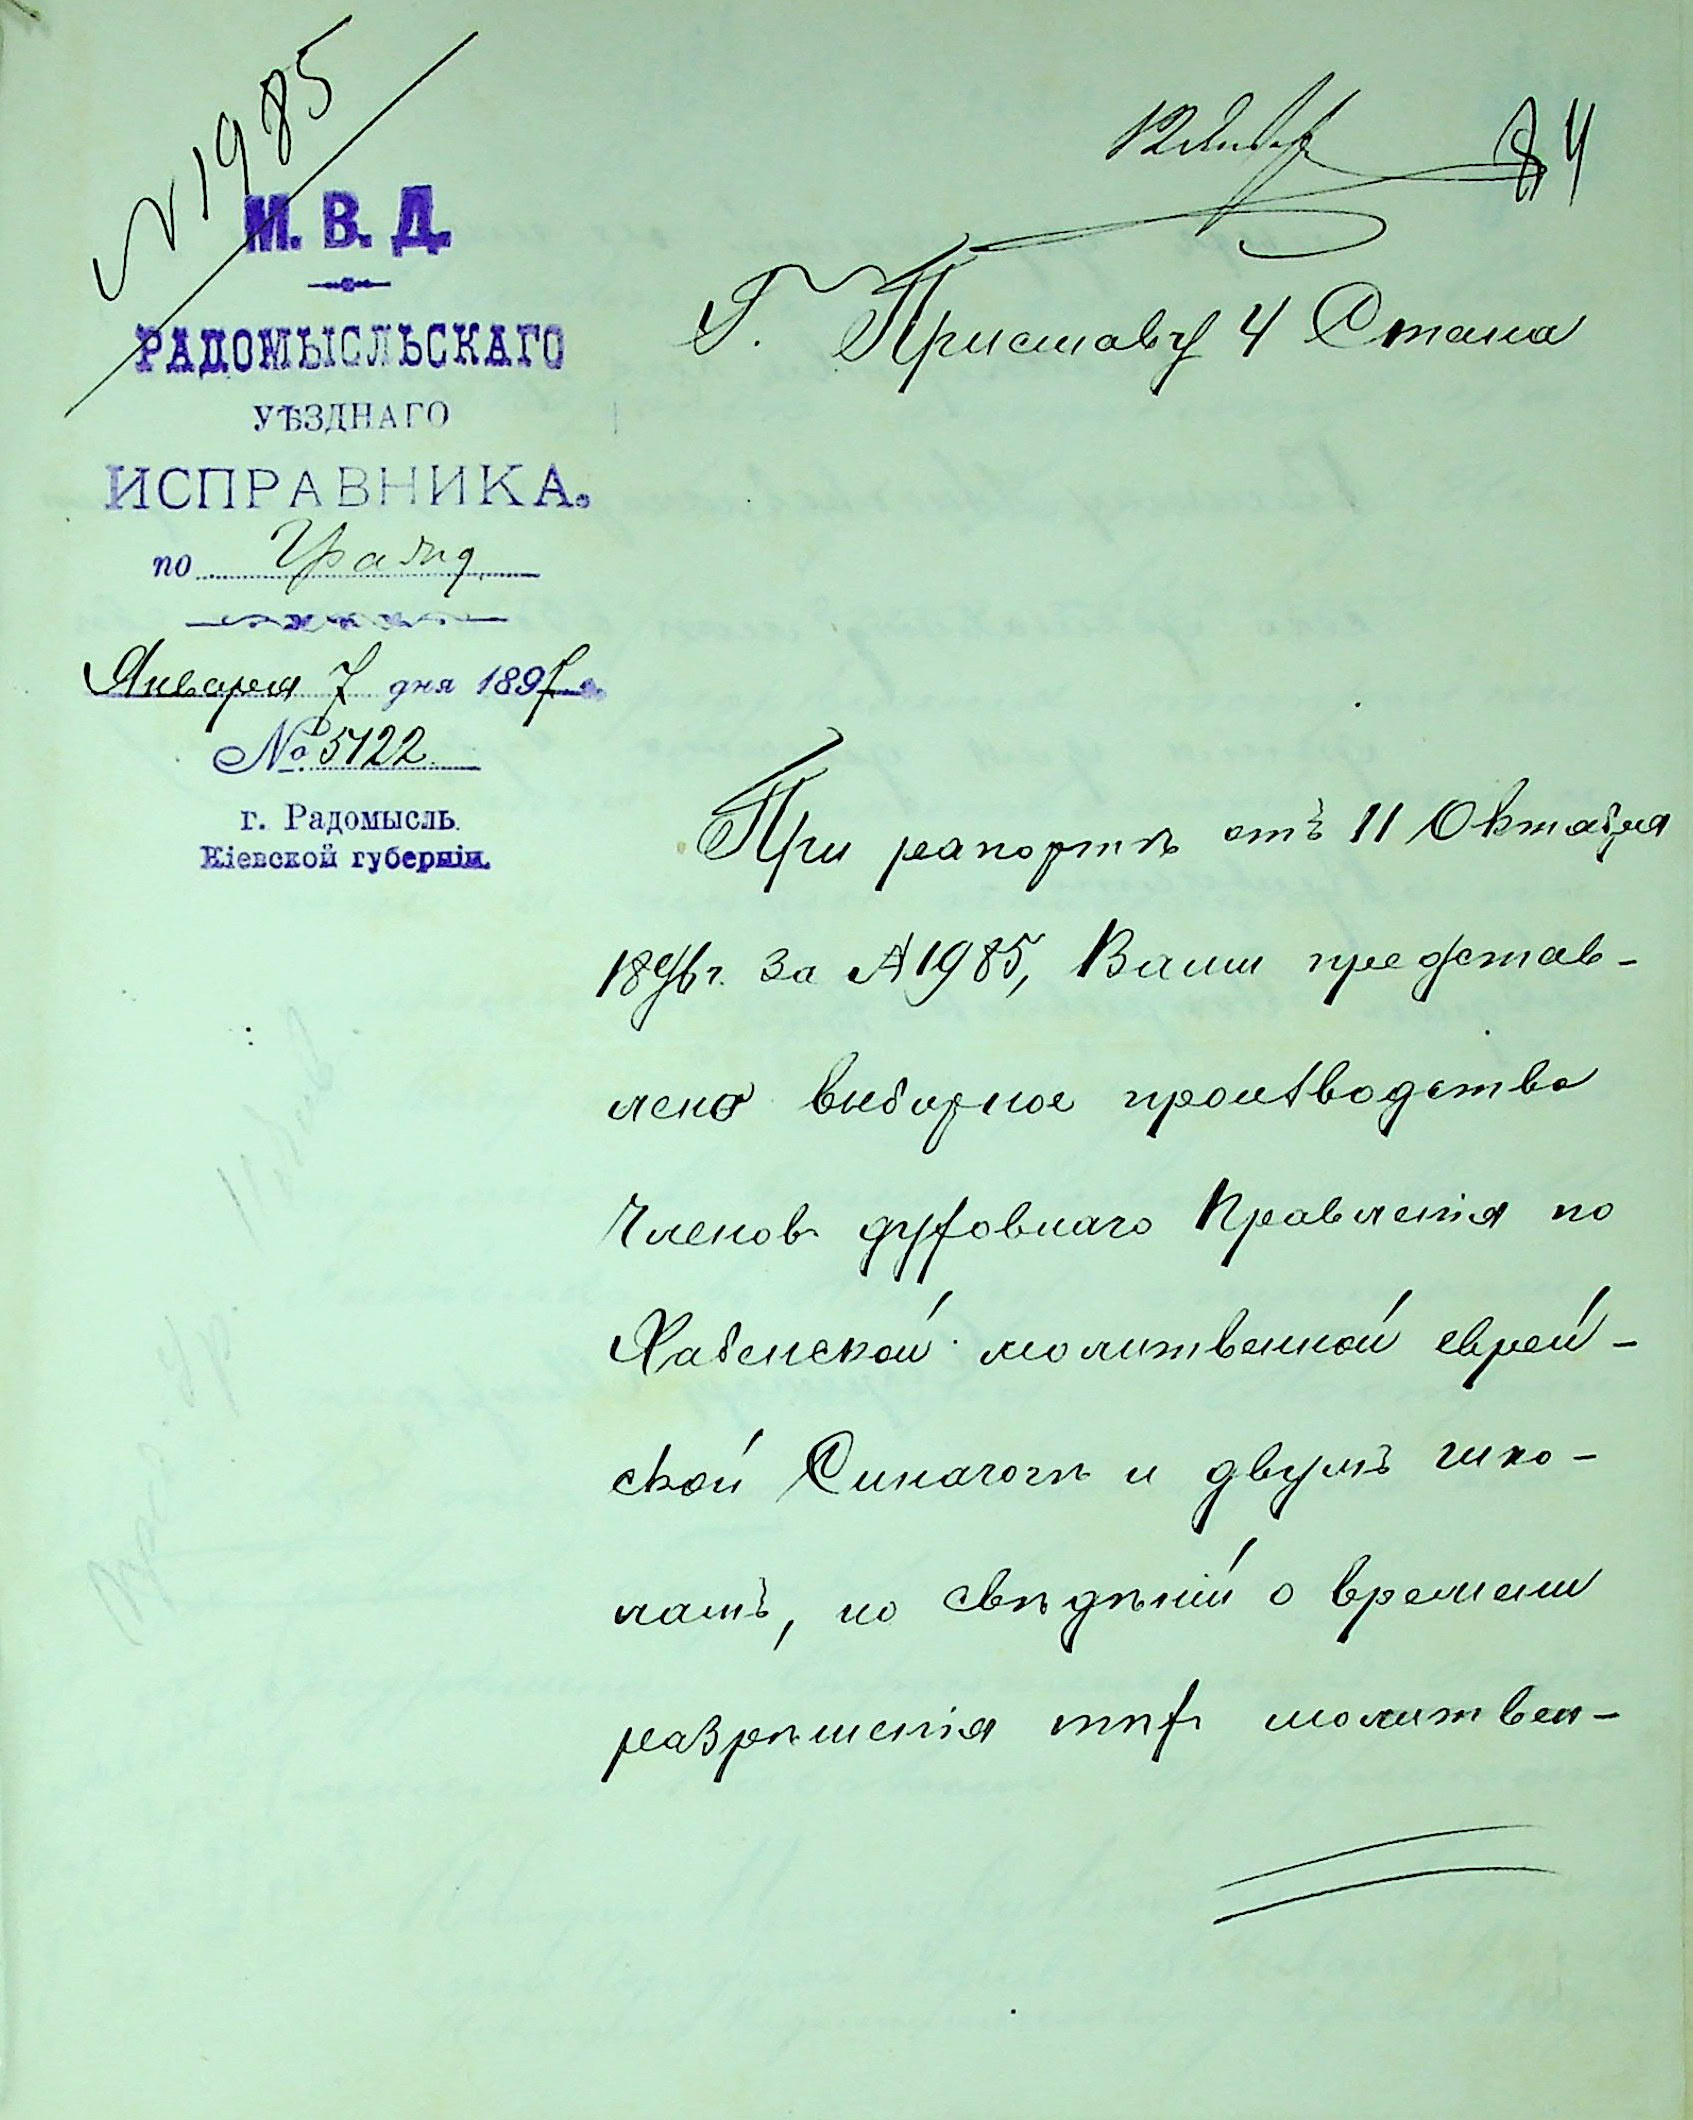 № 1985
84
М. В. Д.
РАДОМЫСЛЬСКАГО
УѢЗДНАГО
ИСПРАВНИКА.
по
Января 7 дня 1897 г.
№ 5122
г. Радомысль
Кіевской губерніи.
Г. Приставу 4 Стана
При рапортѣ отъ 11 Октября
1896 г. за № 1985, Вами представ-
лено выборное производство
Членовъ духовнаго Правленія по
Хабенской молитвенной еврей-
ской Синагогѣ и двумъ шко-
ламъ, но свѣдѣній о времени
разрѣшенія тѣхъ молитвен-